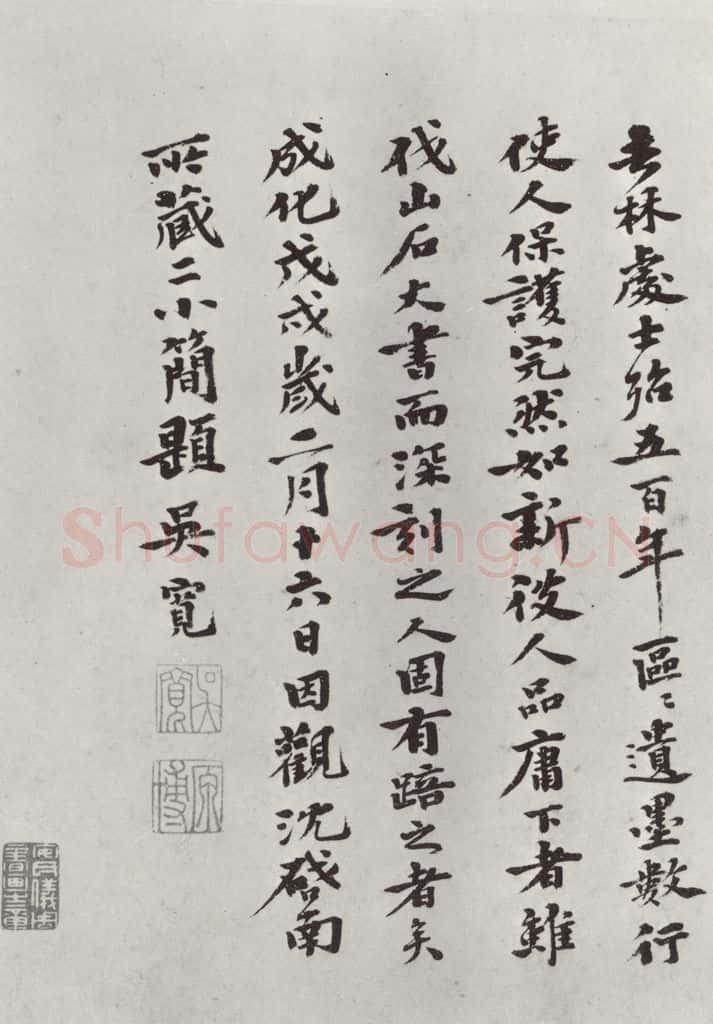 去林處士殆五百年區〻遺墨數行
使人保護完然如新彼人品庸下者雖
伐山石大書而深刻之人固有踣之者矣
成化戊戌歲二月十六日因觀沈啟南
所藏二小簡題 吳寬
吳寬
原博
Shufawang.CN